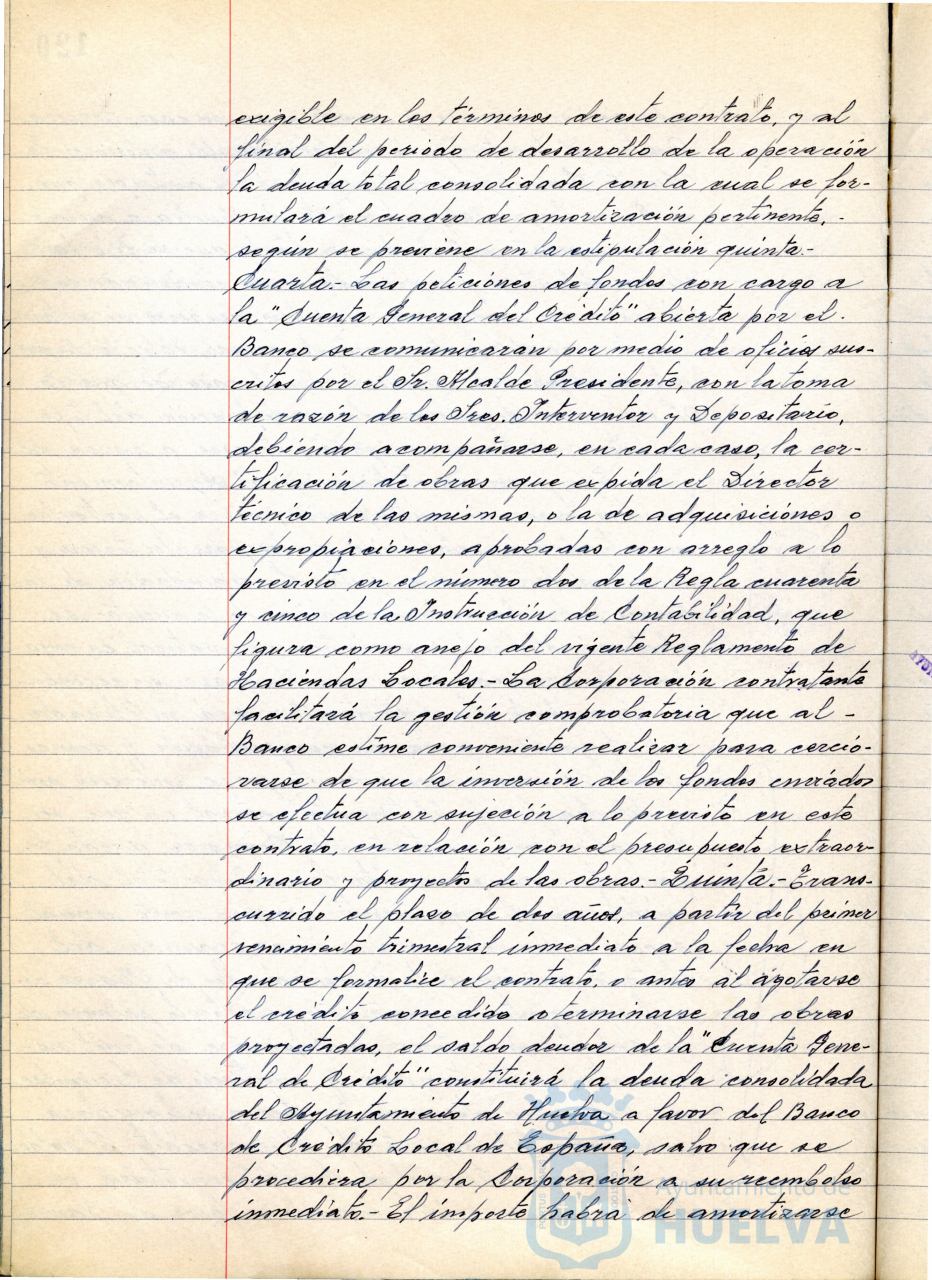 exigible en los términos de este contrato, y al
final del periodo de desarrollo de la operación
la deuda total consolidada con la cual se for-
mulará el cuadro de amortización pertinente, -
según se previene en la estipulación quinta.-
Cuarta.- Las peticiones de fondos con cargo a
la "Cuenta General del Crédito" abierta por el.
Banco se comunicarán por medio de oficios sus-
critos por el Sr. Alcalde Presidente, con la toma
de razón de los Sres. Interventor y Depositario,
debiendo acompañarse, en cada caso, la cer-
tificación de obras que expida el Director
técnico de las mismas, o la de adquisiciones o
expropiaciones, aprobadas con arreglo a lo
previsto en el número dos de la Regla cuarenta
y cinco de la Instrucción de Contabilidad, que
figura como anejo del vigente Reglamento de
Haciendas Locales.- La Corporación contratante
facilitará la gestión comprobatoria que al -
Banco estime conveniente realizar para cercio-
rarse de que la inversión de los fondos enviados
se efectua con sujeción a lo previsto en este
contrato, en relación con el presupuesto extraor-
dinario y proyectos de las obras.- Quinta.- Trans-
currido el plazo de dos años, a partir del primer
vencimiento trimestral inmediato a la fecha en
que se formalice el contrato, o antes al agotarse
el crédito concedido o terminarse las obras
proyectadas, el saldo deudor de la "Cuenta Gene-
ral de Crédito" constituirá la deuda consolidada
del Ayuntamiento de Huelva a favor del Banco
de Crédito Local de España, salvo que se
procediera por la Corporación a su reembolso
inmediato.- El importe habrá de amortizarse
Ayuntamiento de
HUELVA